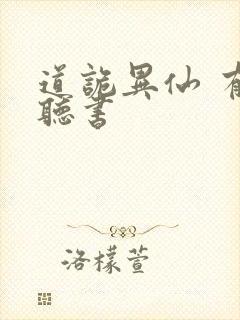 道詭異仙 有
聽書
洛檬萱